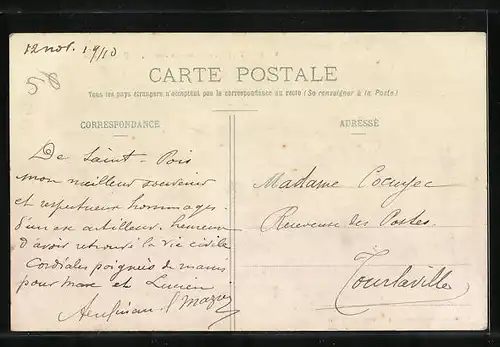 12 nov. 1910
58
CARTE POSTALE
Tous les pays étrangers n'acceptent pas la correspondance au recto (Se renseigner à la Poste)
CORRESPONDANCE
ADRESSE
De Saint-Pois
mon meilleur souvenir
et respectueux hommages
d'un ex artilleur. heureux
d'avoir retrouvé la vie civile
Cordiales poignées de mains
pour Marc et Lucien
Madame
Receveuse des Postes.
Tourlaville